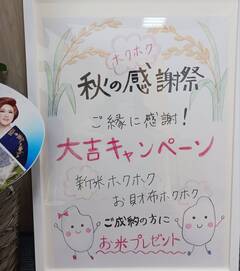 ホクホク
秋の感謝祭
ご縁に感謝!
大吉キャンペーン
新米ホクホク
お財布ホクホク
ご成約の方に
お米プレゼント